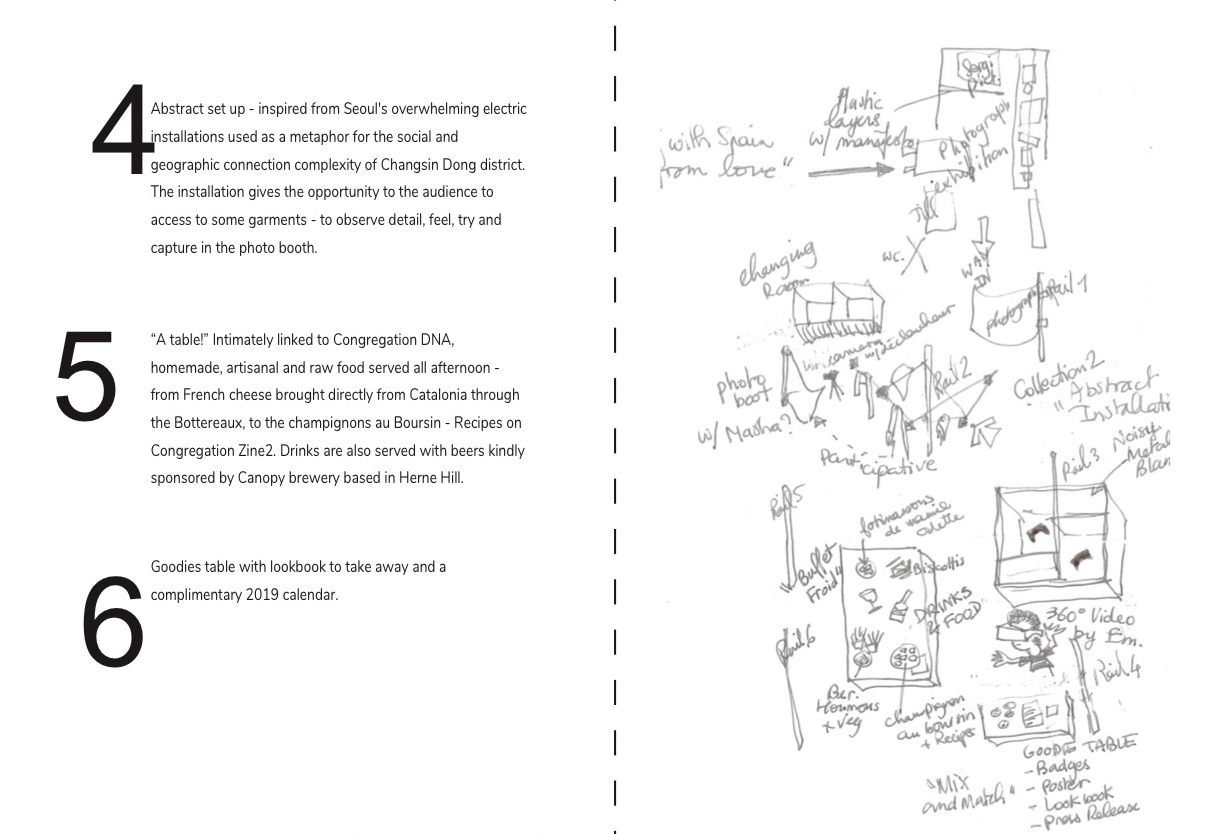 4
Abstract set up - inspired from Seoul's overwhelming electric
installations used as a metaphor for the social and
geographic connection complexity of Changsin Dong district.
The installation gives the opportunity to the audience to
access to some garments - to observe detail, feel, try and
capture in the photo booth.
5
“A table!” Intimately linked to Congregation DNA,
homemade, artisanal and raw food served all afternoon -
from French cheese brought directly from Catalonia through
the Bottereaux, to the champignons au Boursin - Recipes on
Congregation Zine2. Drinks are also served with beers kindly
sponsored by Canopy brewery based in Herne Hill.
6
Goodies table with lookbook to take away and a
complimentary 2019 calendar.
Plastic
layers
w/ manifesto
"with Spain
from love"
Photograph
exhibition
Jill
WC.
WAY
IN
changing
Room
photograph
Rail 1
camera
w/ déclencheur
photo
boot
w/ Masha?
Rail 2
Participative
Collection 2
"Abstract
Installati
Rail 3
Noisy
Metal
Blan
Rail 5
de mamie
odette
Buffet
Froid"
Biscottis
DRINKS
& FOOD
360° Video
by Em.
Rail 6
Rail 4
Hommous
+ Veg
champignon
au boursin
+ Recipe
TABLE
- Badges
- Poster
- Lookbook
- Press Release
"Mix
and Match"